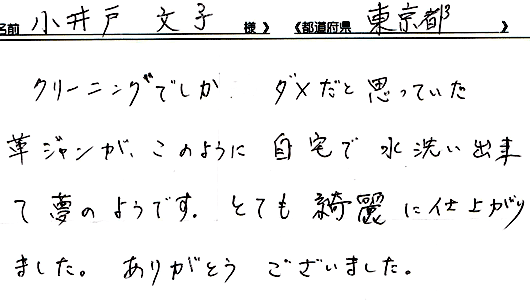 名前 小井戸 文子 様》 《都道府県 東京都 》
クリーニングでしか ダメだと思っていた
革ジャンが、このように 自宅で 水洗い出来
て 夢のようです。 とても 綺麗に仕上がり
ました。 ありがとう ございました。